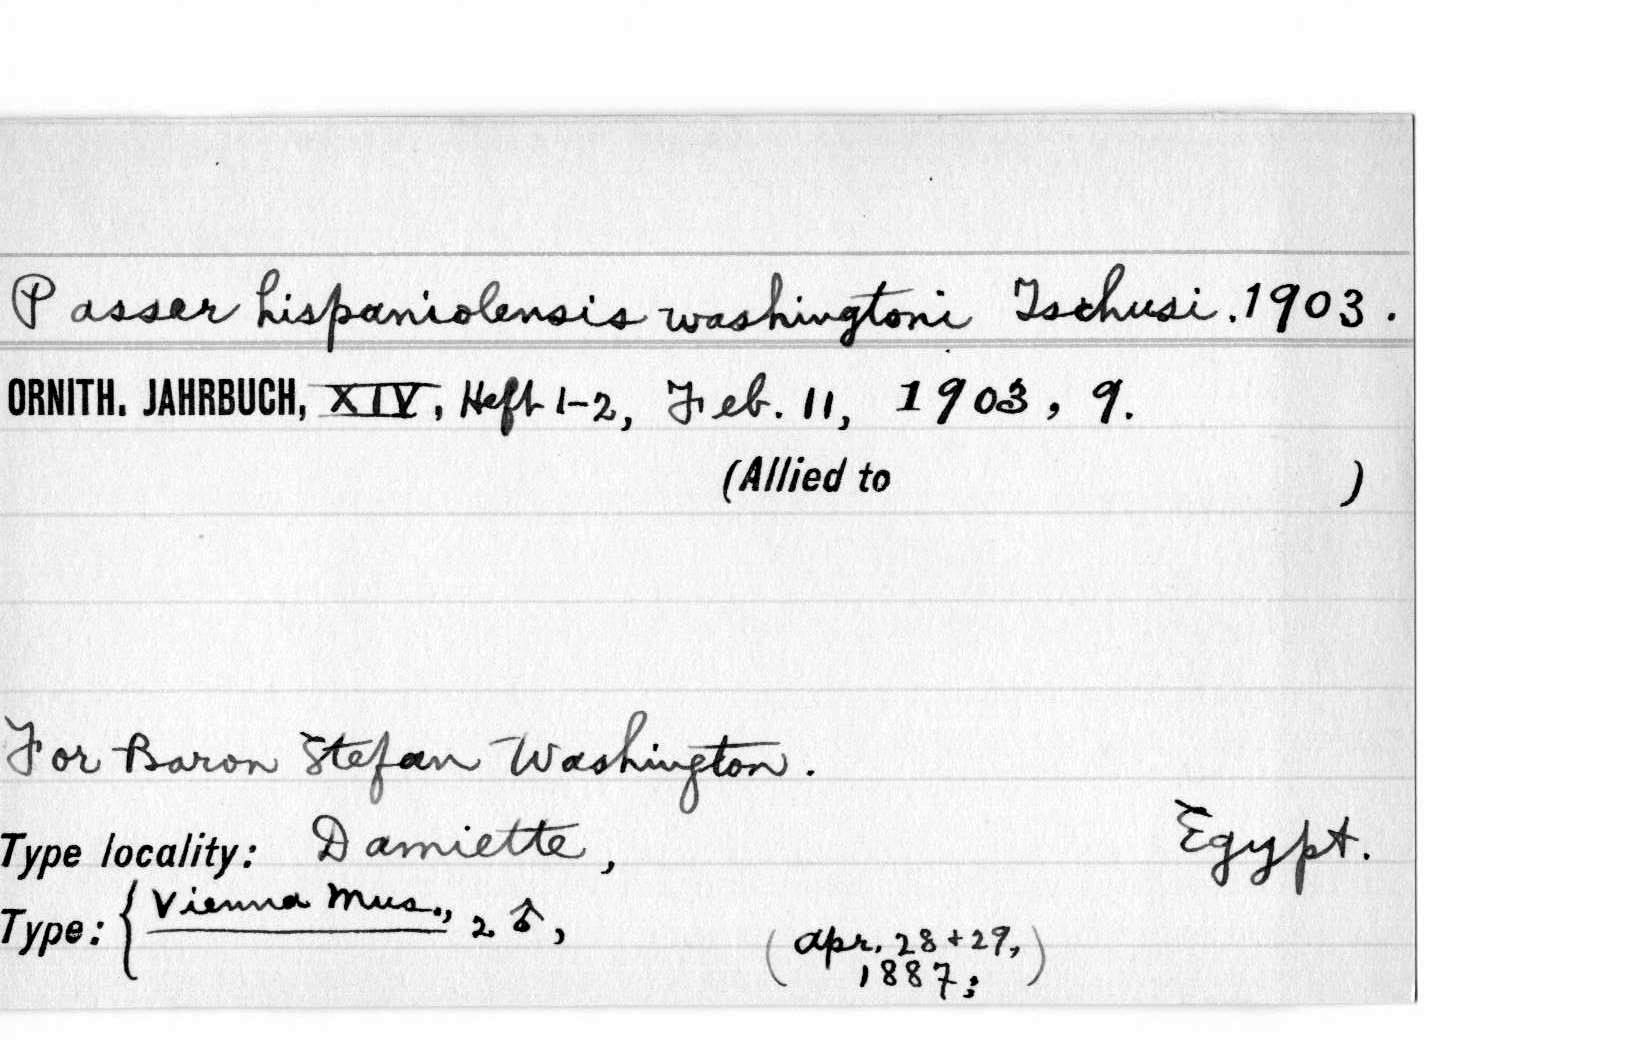 Passer hispaniolensis washingtoni Tschusi. 1903.
ORNITH. JAHRBUCH, XIV, Heft 1-2, Feb. 11, 1903, 9.
(Allied to )
For Baron Stefan Washington.
Type locality: Damiette, Egypt.
Type: { Vienna Mus., 2 ♂,
(Apr. 28 + 29,
1887;)